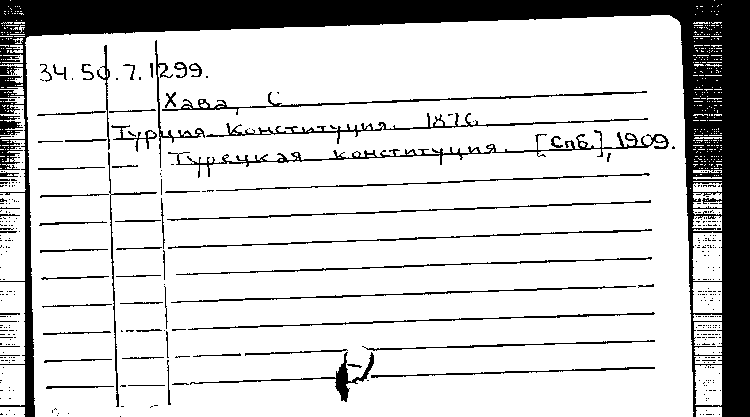 34.50.7.1299.
Хава, С
Турция. Конституция. 1876
Турецкая конституция. [Спб.], 1909.